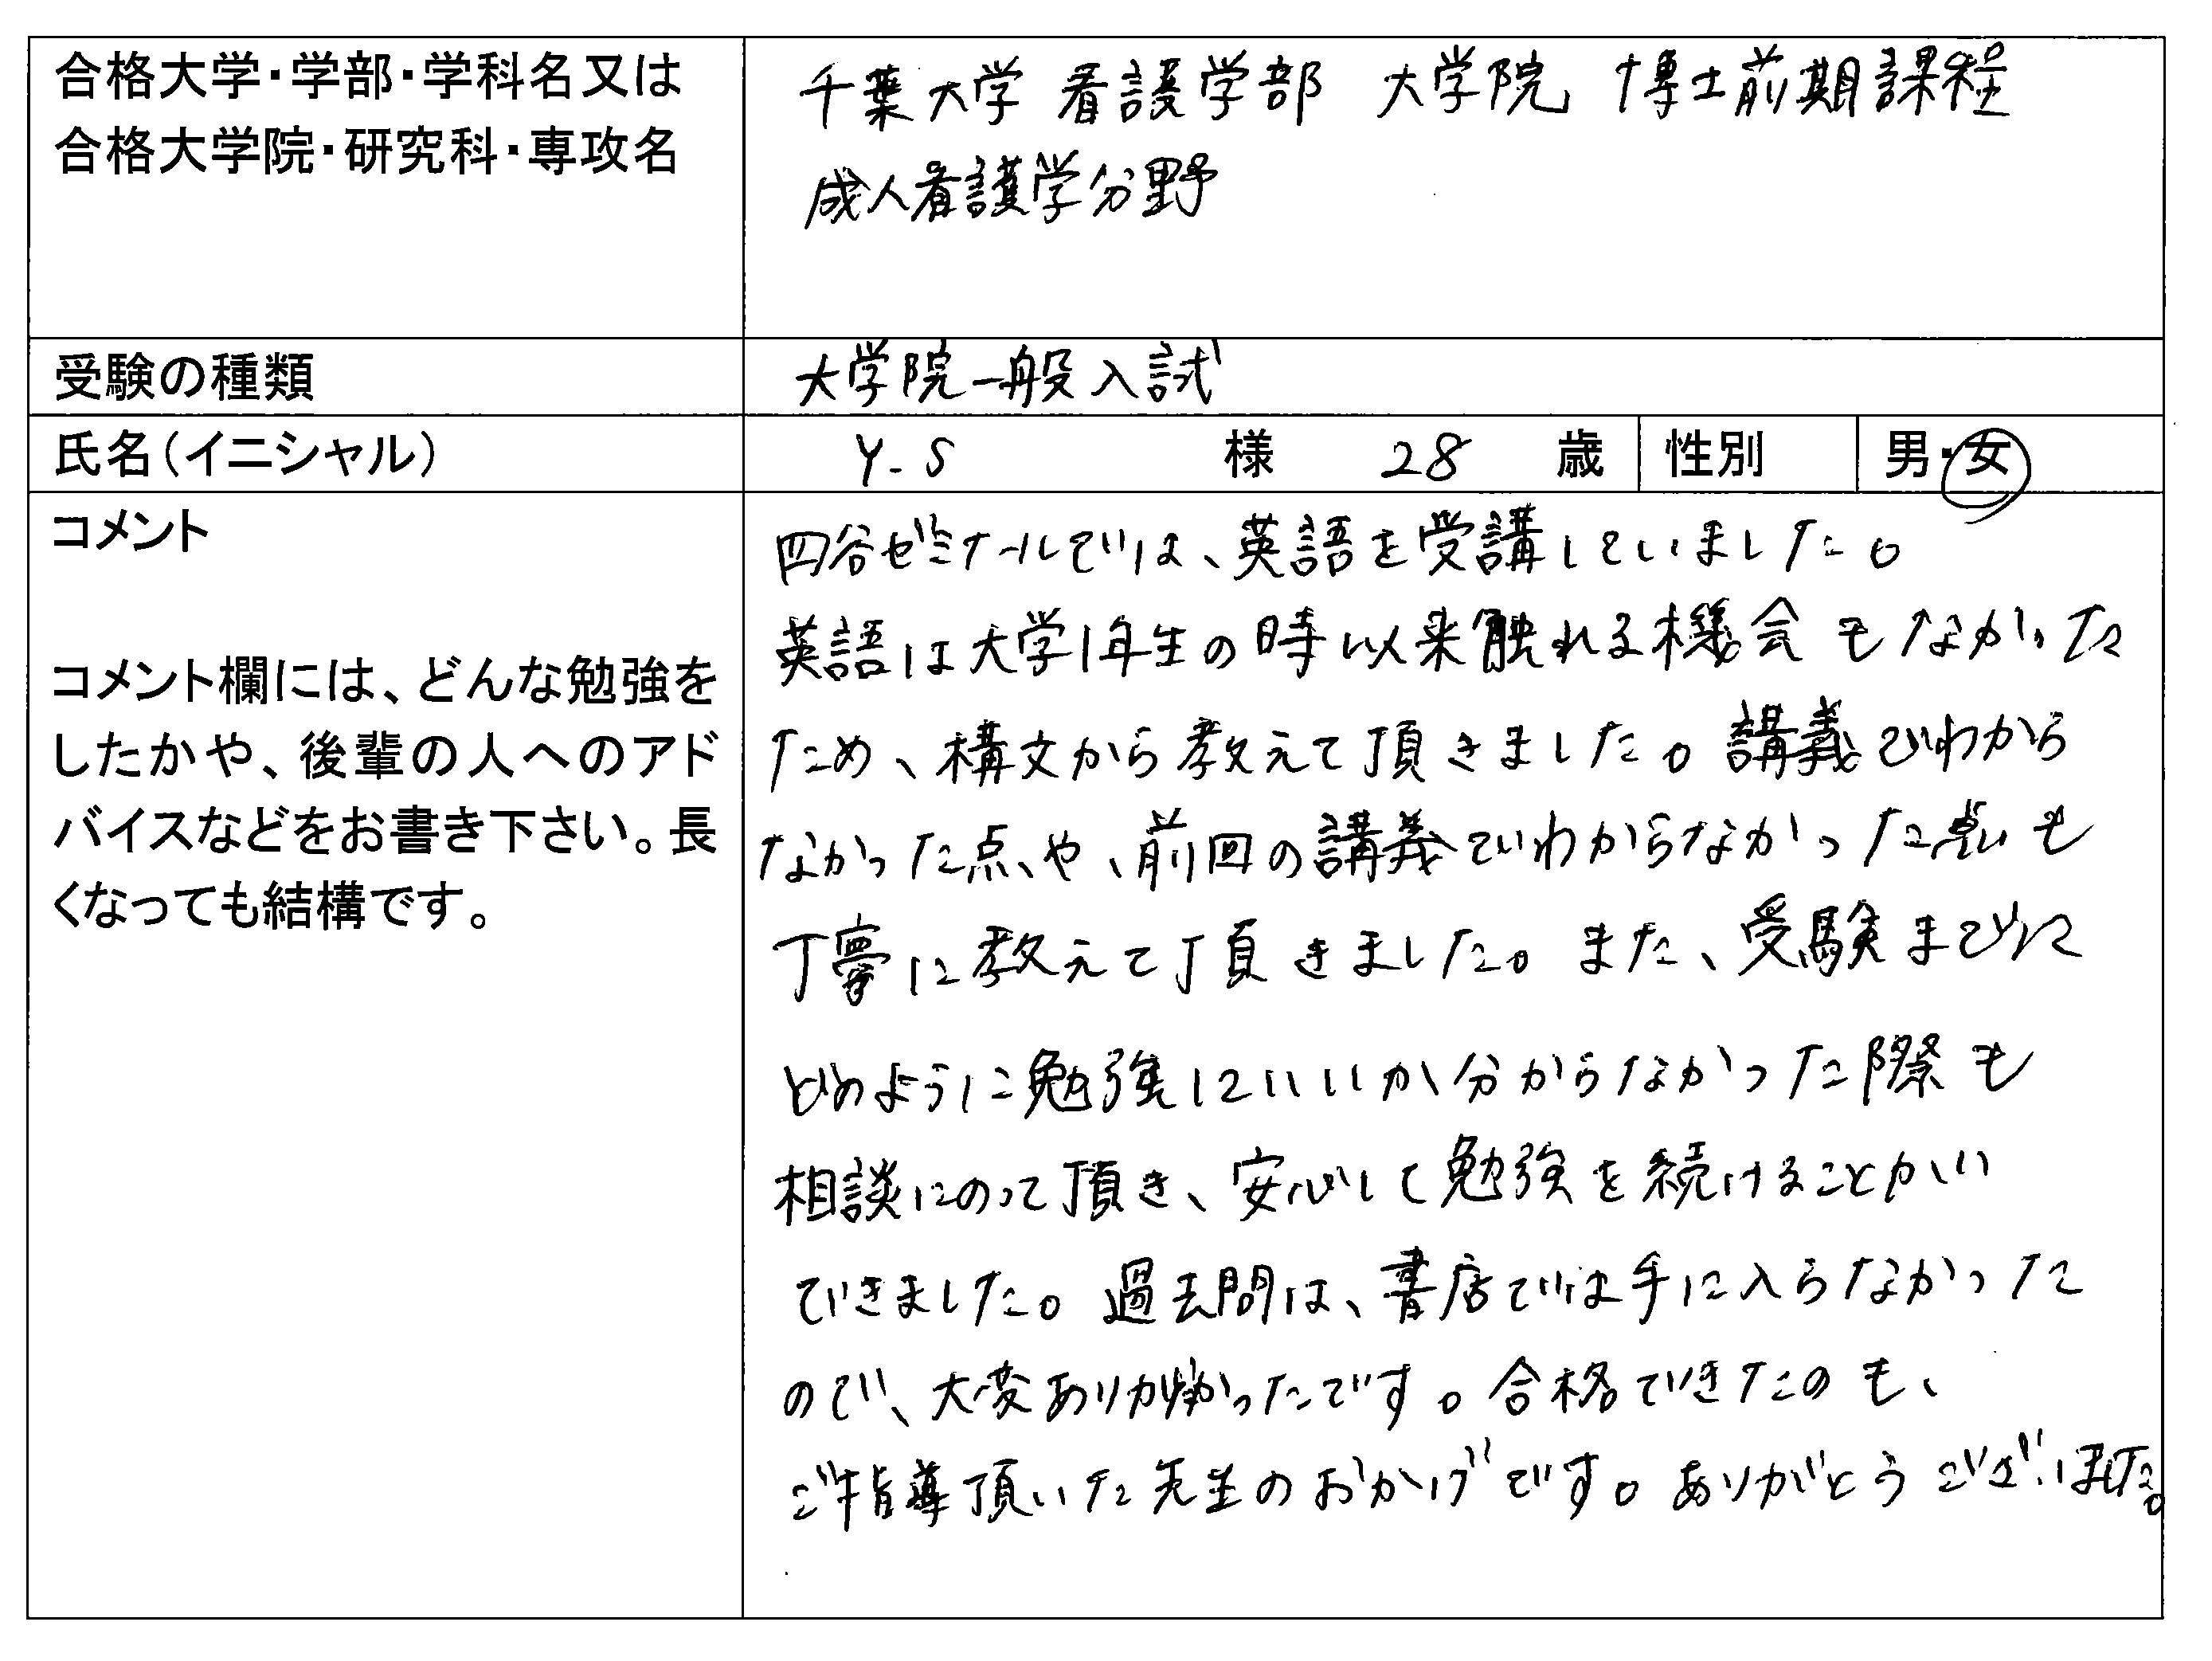 合格大学・学部・学科名又は
合格大学院・研究科・専攻名
千葉大学 看護学部 大学院 博士前期課程
成人看護学分野
受験の種類
大学院一般入試
氏名(イニシャル)
Y.S 様 28 歳 性別 男・女
コメント
コメント欄には、どんな勉強を
したかや、後輩の人へのアド
バイスなどをお書き下さい。長
くなっても結構です。
四谷ゼミナールでは、英語を受講していました。
英語は大学1年生の時以来触れる機会もなかった
ため、構文から教えて頂きました。講義でわから
なかった点や、前回の講義でわからなかった点も
丁寧に教えて頂きました。また、受験までに
どのように勉強していいか分からなかった際も
相談にのって頂き、安心して勉強を続けることが
できました。過去問は、書店では手に入らなかった
ので、大変ありがたかったです。合格できたのも、
ご指導頂いた先生のおかげです。ありがとうございました。